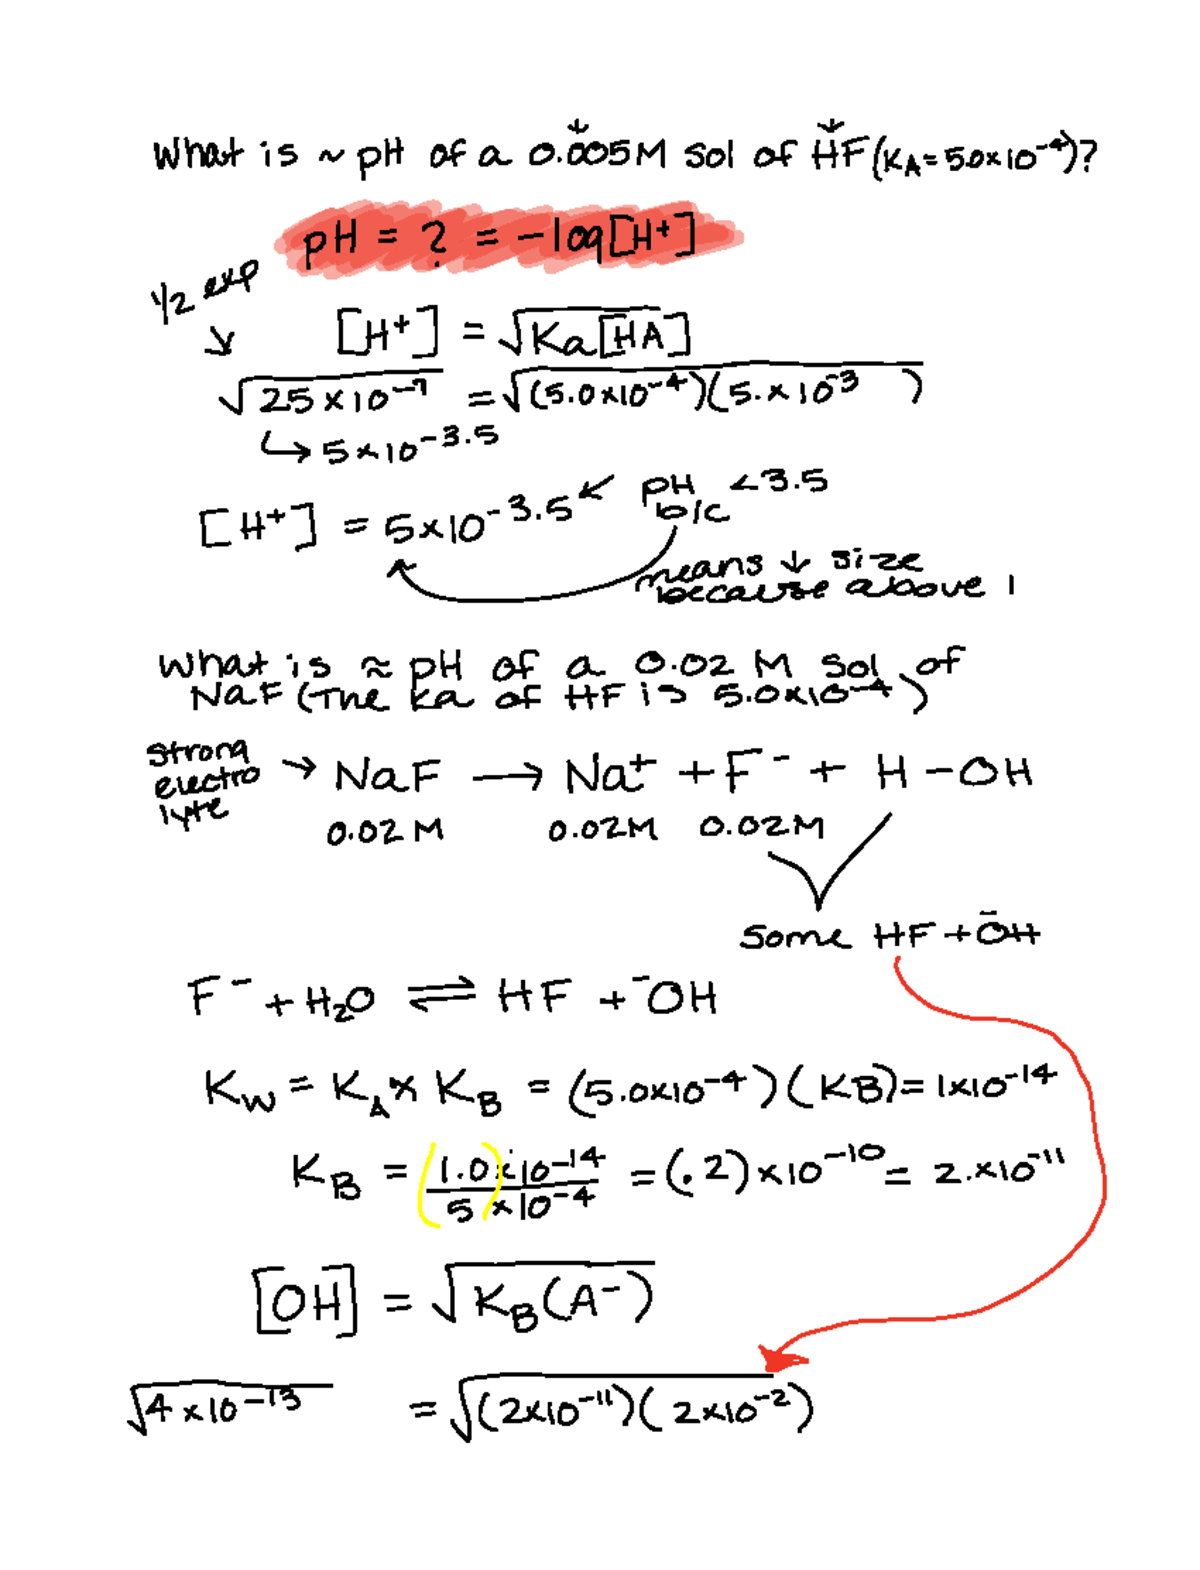 What is ~ pH of a 0.005M sol of HF (KA = 5.0x10⁻⁴)?
pH = ? = -log[H+]
1/2 exp
[H+] = √Ka[HA]
√25x10⁻⁷ = √(5.0x10⁻⁴)(5.x10⁻³ )
↳ 5x10⁻³·⁵
[H+] = 5x10⁻³·⁵ ↙ pH <3.5
b/c
means ↓ size
because above 1
What is ≈ pH of a 0.02 M sol of
NaF (The Ka of HF is 5.0x10⁻⁴)
strong
electro
lyte
→ NaF → Na+ + F⁻ + H-OH
0.02M 0.02M 0.02M
Some HF + ⁻OH
F⁻ + H₂O ⇌ HF + ⁻OH
Kw = KA x KB = (5.0x10⁻⁴)(KB) = 1x10⁻¹⁴
KB = (1.0)x10⁻¹⁴ / 5 x10⁻⁴ = (.2)x10⁻¹⁰ = 2.x10⁻¹¹
[OH] = √KB(A⁻)
√4x10⁻¹³ = √(2x10⁻¹¹)(2x10⁻²)